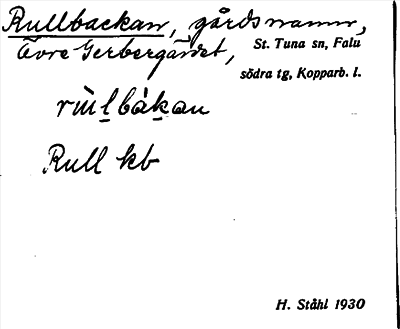 Rullbackan, gårdsnamn,
Övre Gerbergärdet, St. Tuna sn, Falu
södra tg, Kopparb. l.
rùl̠bàk̠an
Rull kb
H. Ståhl 1930